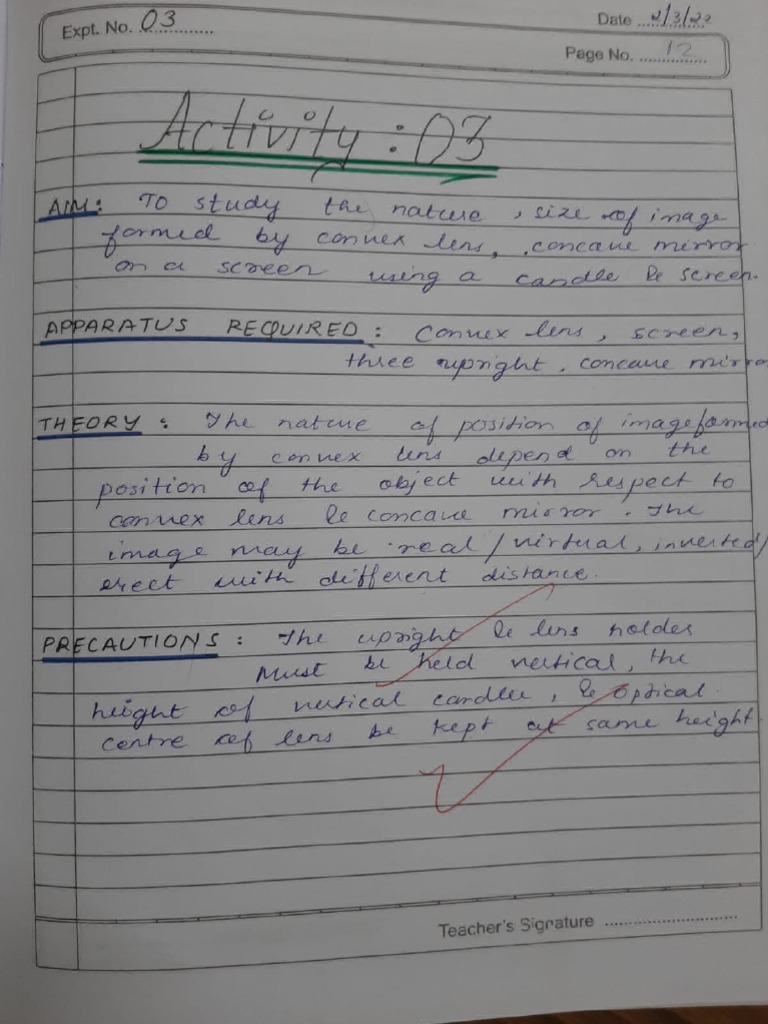 Expt. No. 03
Date 2/3/22
Page No. 12
Activity : 03
AIM: To study the nature, size of image
formed by convex lens, concave mirror
on a screen using a candle & screen.
APPARATUS REQUIRED : Convex lens, screen,
three upright, concave mirror
THEORY : The nature of position of image formed
by convex lens depend on the
position of the object with respect to
convex lens & concave mirror. The
image may be real/virtual, inverted/
erect with different distance.
PRECAUTIONS : The upright & lens holder
must be held vertical, the
height of vertical candle, & optical
centre of lens be kept at same height
Teacher's Signature